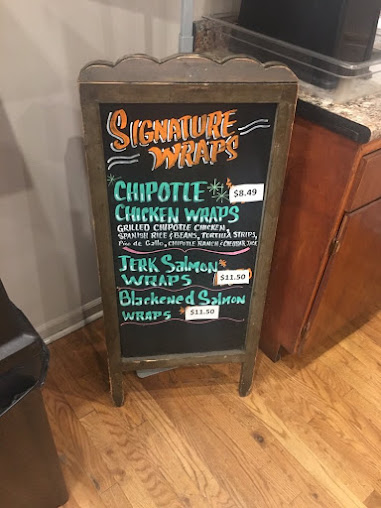 SIGNATURE
WRAPS
CHIPOTLE $8.49
CHICKEN WRAPS
GRILLED CHIPOTLE CHICKEN,
SPANISH RICE & BEANS, TORTILLA STRIPS,
Pico de Gallo, CHIPOTLE RANCH & CHEDDAR JACK
JERK SALMON
WRAPS $11.50
Blackened Salmon
WRAPS $11.50